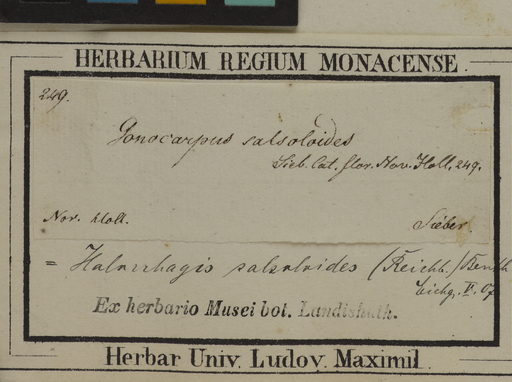 HERBARIUM REGIUM MONACENSE.
249.
Gonocarpus salsoloides
Sieb. Cat. flor. Nov. Holl. 249.
Nov. Holl.
Sieber.
= Halorrhagis salsoloides (Reichb.) Benth
Eichg. II. 07.
Ex herbario Musei bot. Landishuth.
Herbar Univ. Ludov. Maximil.